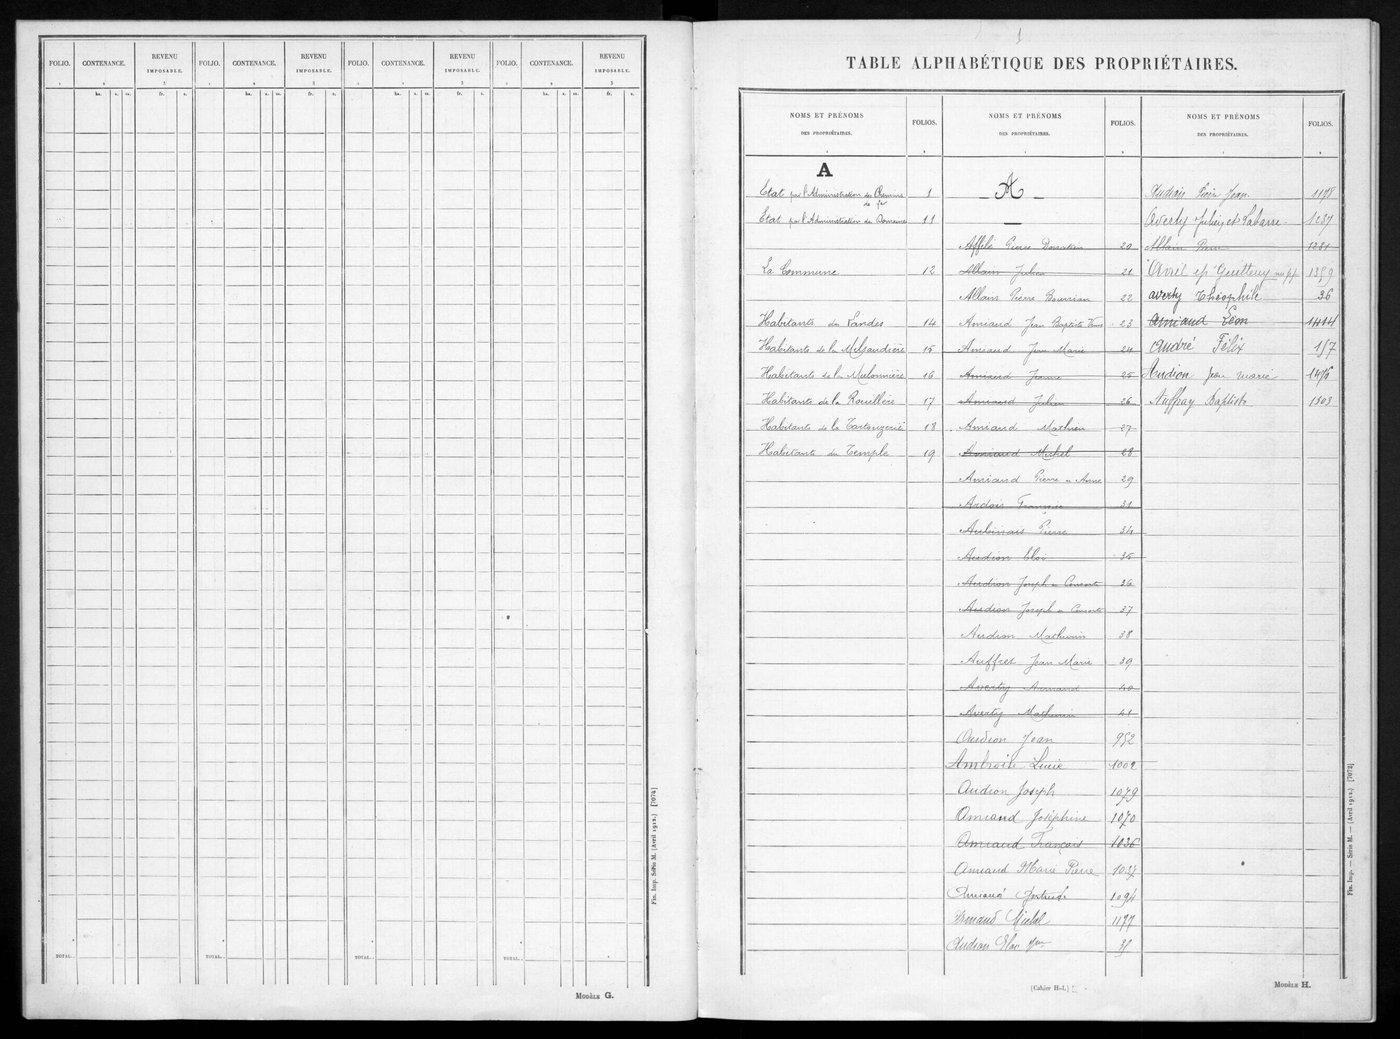 FOLIO. CONTENANCE. REVENU IMPOSABLE. FOLIO. CONTENANCE. REVENU IMPOSABLE. FOLIO. CONTENANCE. REVENU IMPOSABLE. FOLIO. CONTENANCE. REVENU IMPOSABLE.
1 2 3 1 2 3 1 2 3 1 2 3
ha. a. ca. fr. c. ha. a. ca. fr. c. ha. a. ca. fr. c. ha. a. ca. fr. c.
TOTAL. TOTAL. TOTAL. TOTAL.
Fin. Imp. Série M. (Avril 1912.) [7074]
MODÈLE G.
1
TABLE ALPHABÉTIQUE DES PROPRIÉTAIRES.
NOMS ET PRÉNOMS DES PROPRIÉTAIRES. FOLIOS.
A
Etat par l'Administration des Chemins de fer 1
Etat par l'Administration des Domaines 11
La Commune 12
Habitants des Landes 14
Habitants de la 15
Habitants de la Mulonnière 16
Habitants de la Rouillère 17
Habitants de la 18
Habitants du Temple 19
NOMS ET PRÉNOMS DES PROPRIÉTAIRES. FOLIOS.
A
Affilé Pierre Donatien 20
Allain Julien 21
Allain Pierre 22
Amiaud Jean Baptiste 23
Amiaud Jean Marie 24
Amiaud Jeanne 25
Amiaud Julien 26
Amiaud Mathieu 27
Amiaud Michel 28
Amiaud Pierre 29
Ardois François 31
Aubinais Pierre 34
Audion Eloi 35
Audion Joseph et Consorts 36
Audion Joseph et Consorts 37
Audion Mathurin 38
Auffret Jean Marie 39
Averty Armand 40
Averty Mathurin 41
Audion Jean 952
Ambroise Lucie 1002
Audion Joseph 1079
Amiaud Joséphine 1070
Amiaud François 1036
Amiaud Marie Pierre 1027
Amiaud Gertrude 1094
Armaud Michel 1177
Audion Eloi 35
NOMS ET PRÉNOMS DES PROPRIÉTAIRES. FOLIOS.
Jean 1178
Averty Julien et Labarre 1237
Allain Pierre 1281
Avril ep Guitteny 1359
Averty Théophile 36
Amiaud Léon 1414
André Félix 157
Audion Jean Marie 1476
Auffray Baptiste 1503
Fin. Imp. — Série M. — (Avril 1912.) [7073]
(Cahier H-I.)
MODÈLE H.